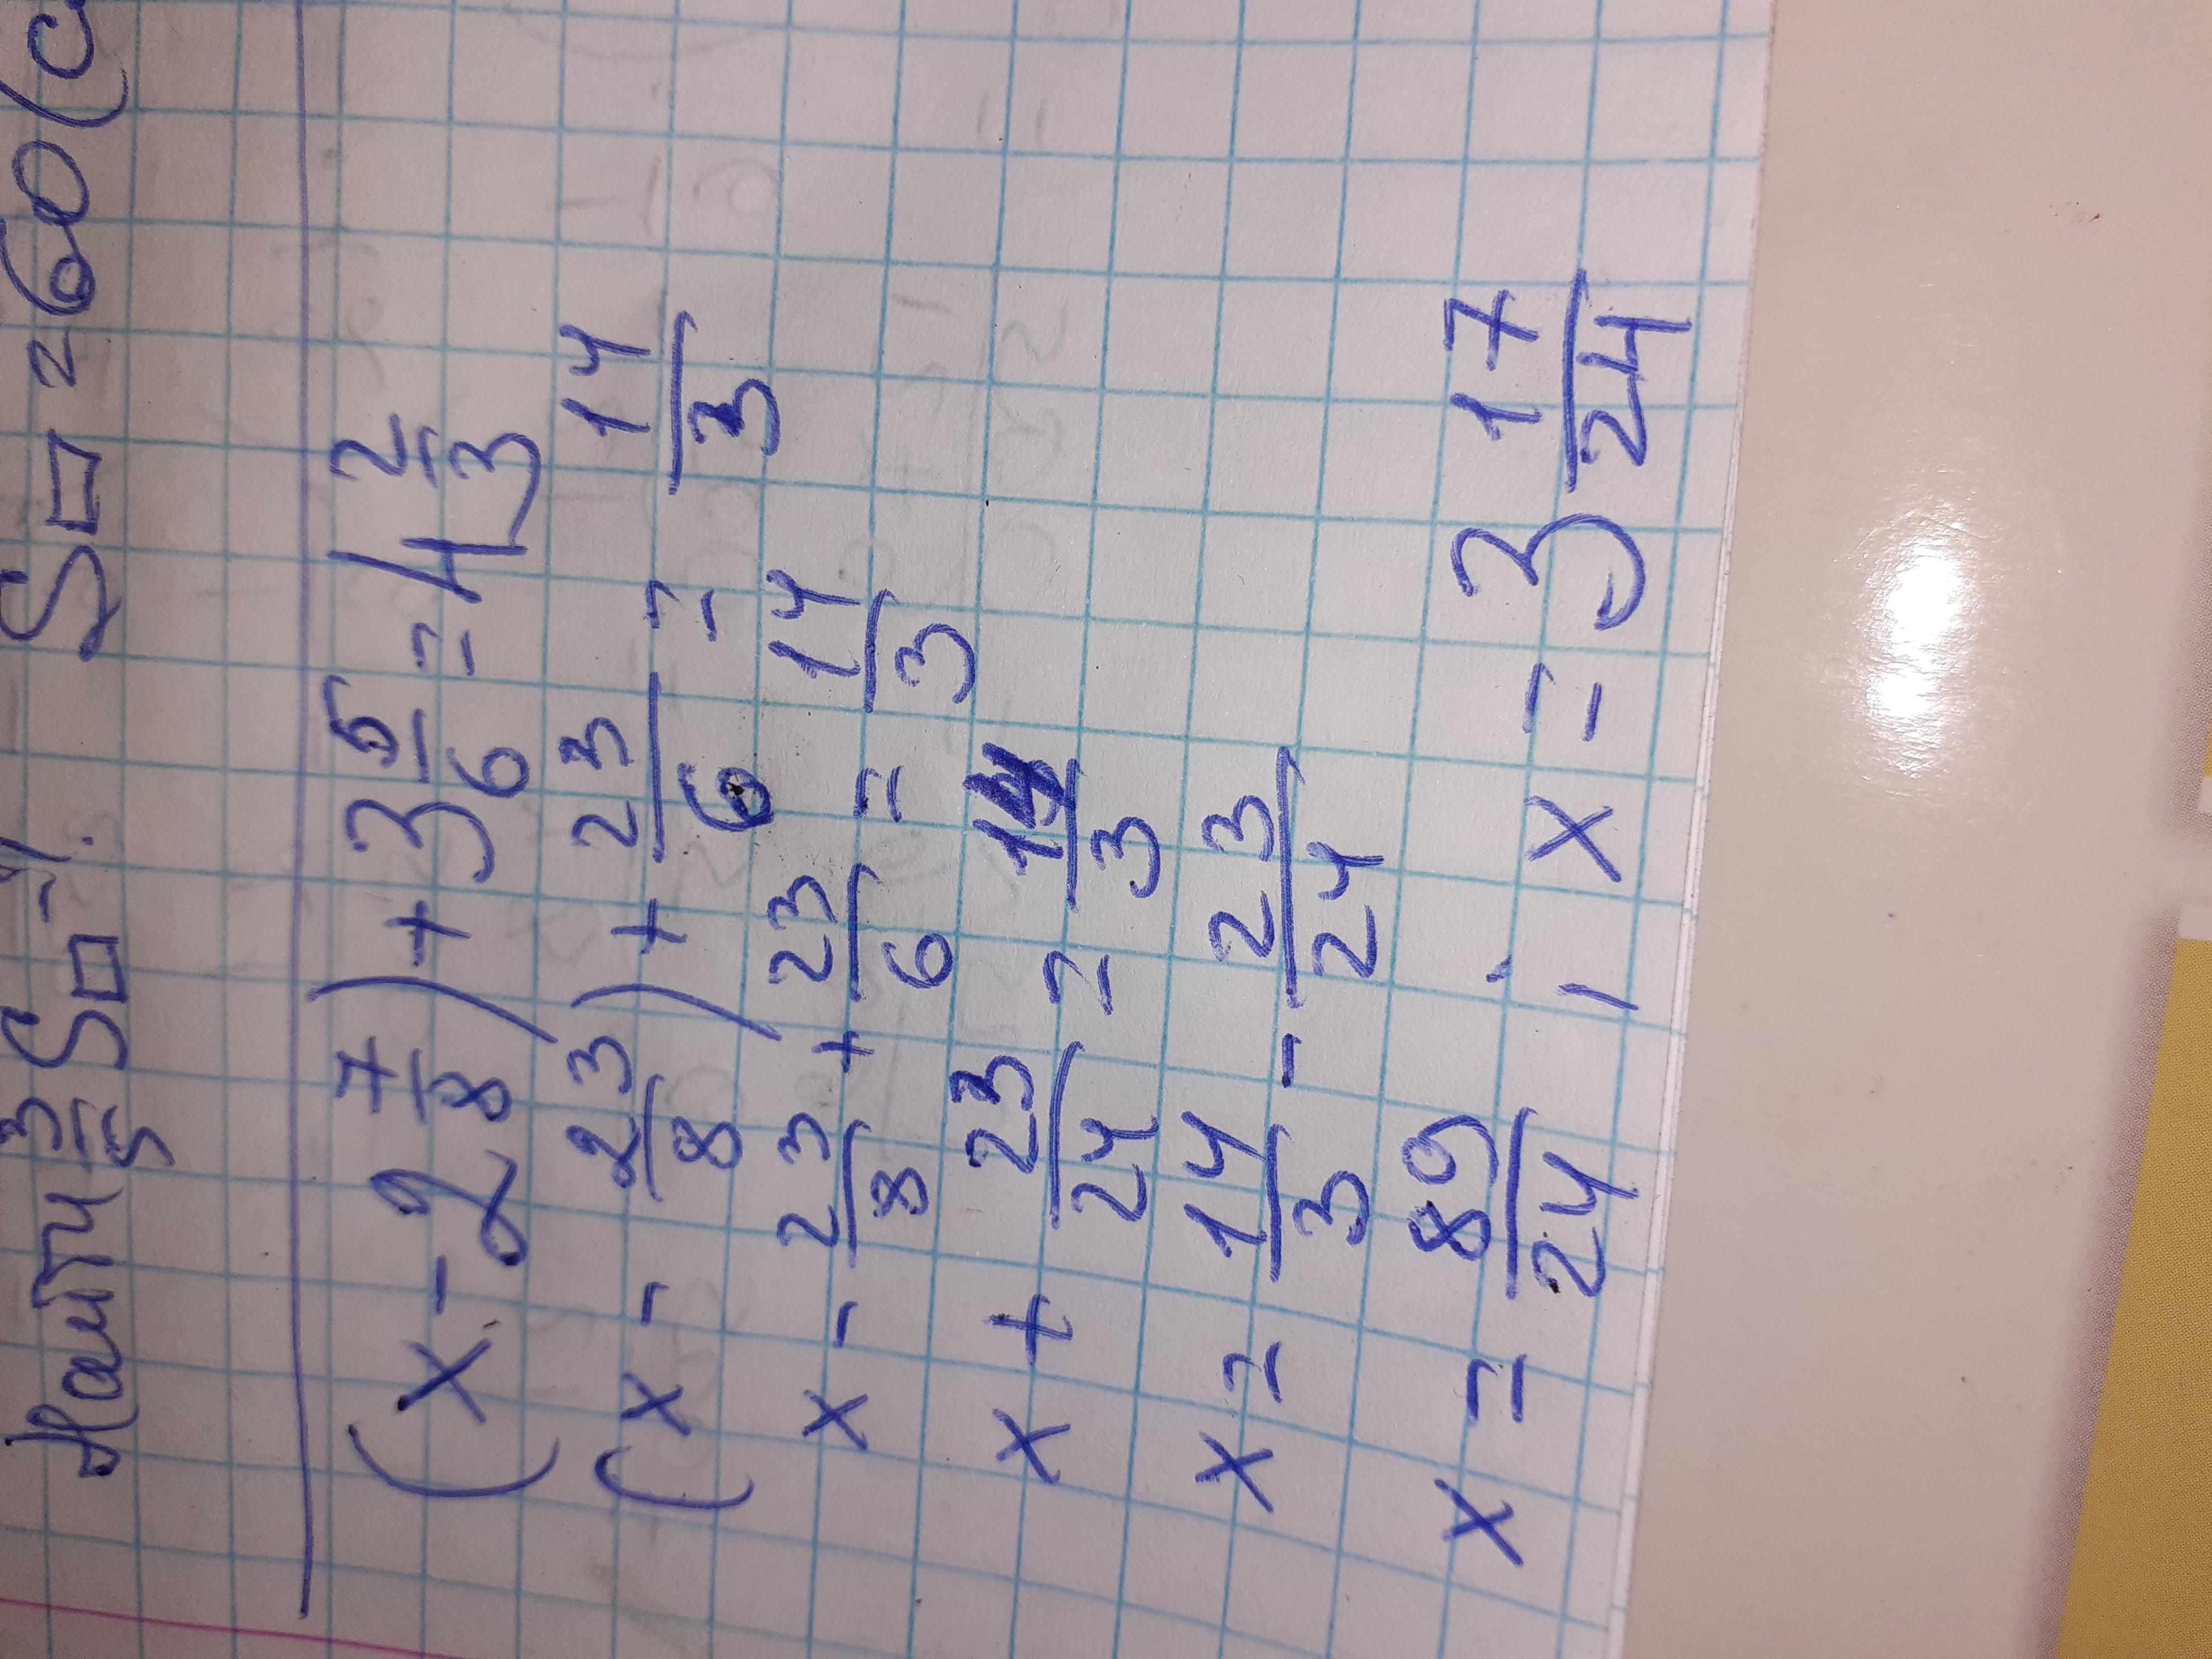 Найти 3/5 S□ - ?. S□ = 60 (с
(x - 2 7/8) + 3 5/6 = 4 2/3
(x - 23/8) + 23/6 = 14/3
x - 23/8 + 23/6 = 14/3
x + 23/24 = 14/3
x = 14/3 - 23/24
x = 89/24 ; x = 3 17/24